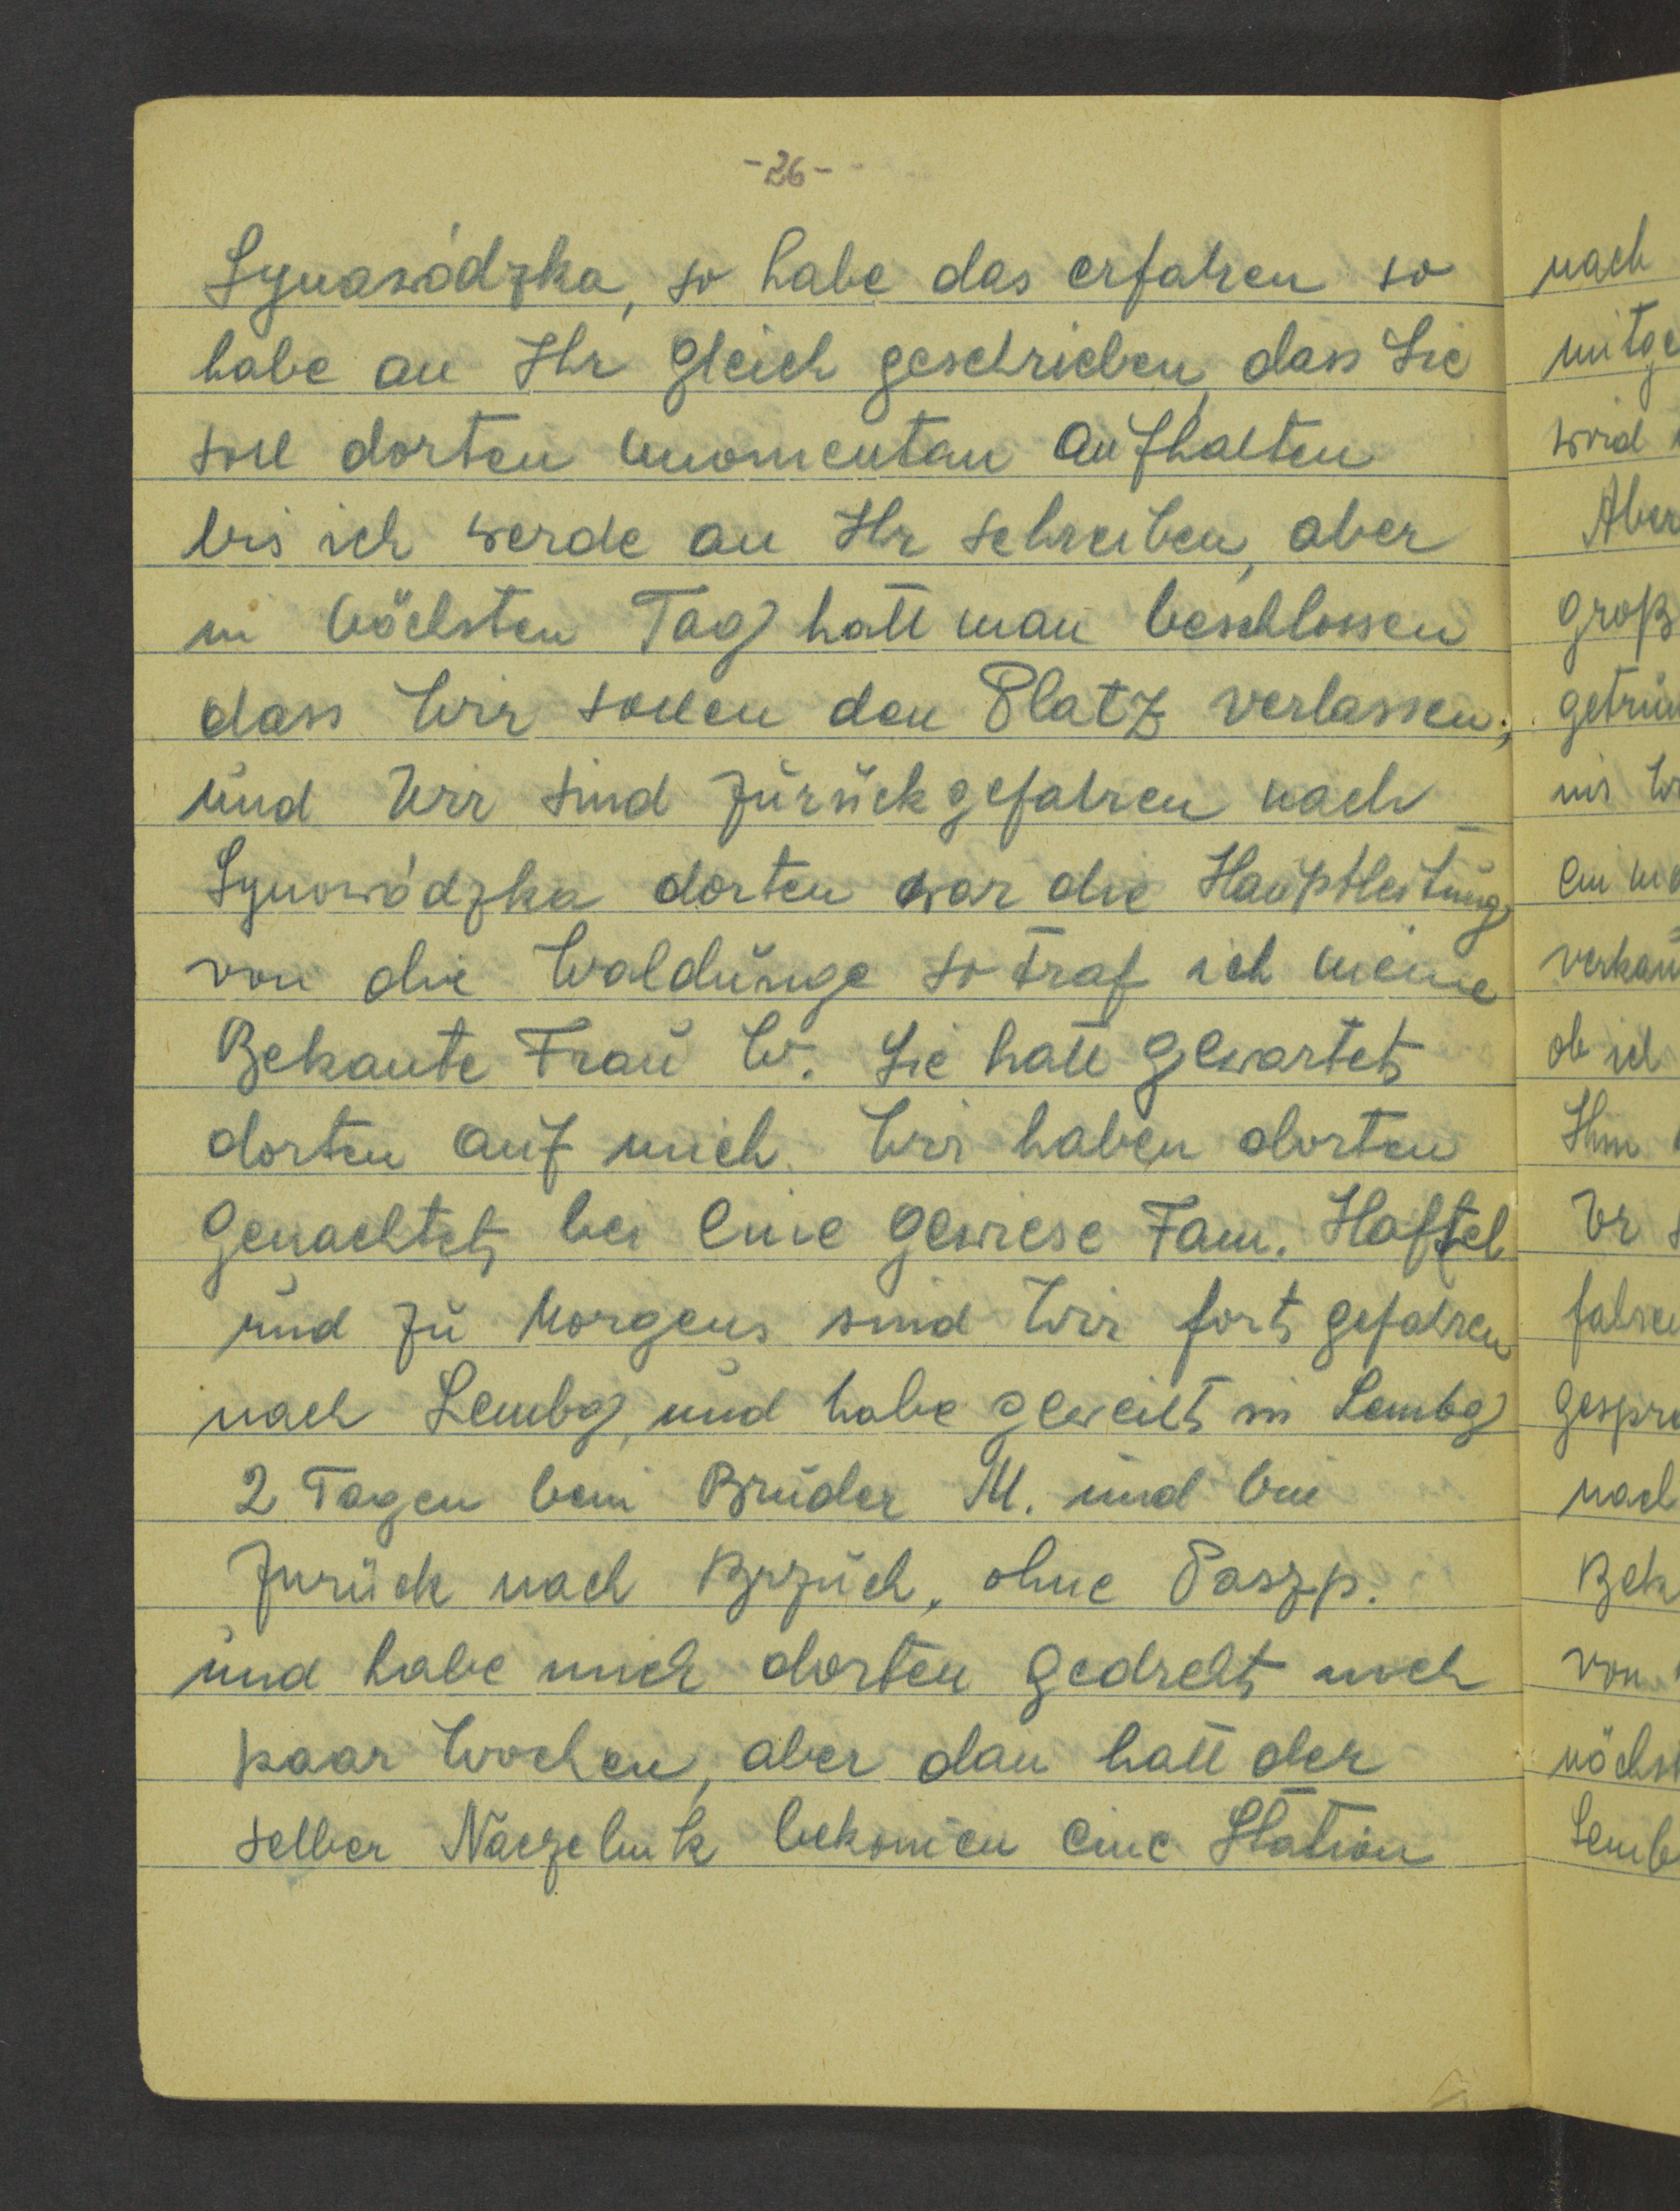 -26-
Synawódzka, so habe das erfahren so
habe an Ihr gleich geschrieben, dass Sie
soll dorten momentan aufhalten
bis ich werde an Ihr schreiben, aber
in nöchsten Tag hatt man beschlossen
dass Wir sollen den Platz verlassen;
und Wir sind zurückgefahren nach
Synowódzka dorten war die Hauptleitung
von die Waldunge so traf ich meine
Bekante Frau W. Sie hatt gewartet
dorten auf mich. Wir haben dorten
genachtet bei eine gewiese Fam. Haftel
und zu Morgens sind Wir fort gefahren
nach Lembg, und habe geweilt in Lembg
2 Tagen beim Bruder M. und bin
zurück nach Brzuch. ohne Paszp.
und habe mich dorten gedreht noch
paar Wochen, aber dan hatt der
selber Naczelnik bekomen eine Station
nach
mitge
wird
Aber
groß
getru
ins W
ein
verkau
ob ich
Ihm
Er
fahren
gespro
nach
Bek
von
nöchst
Lemb